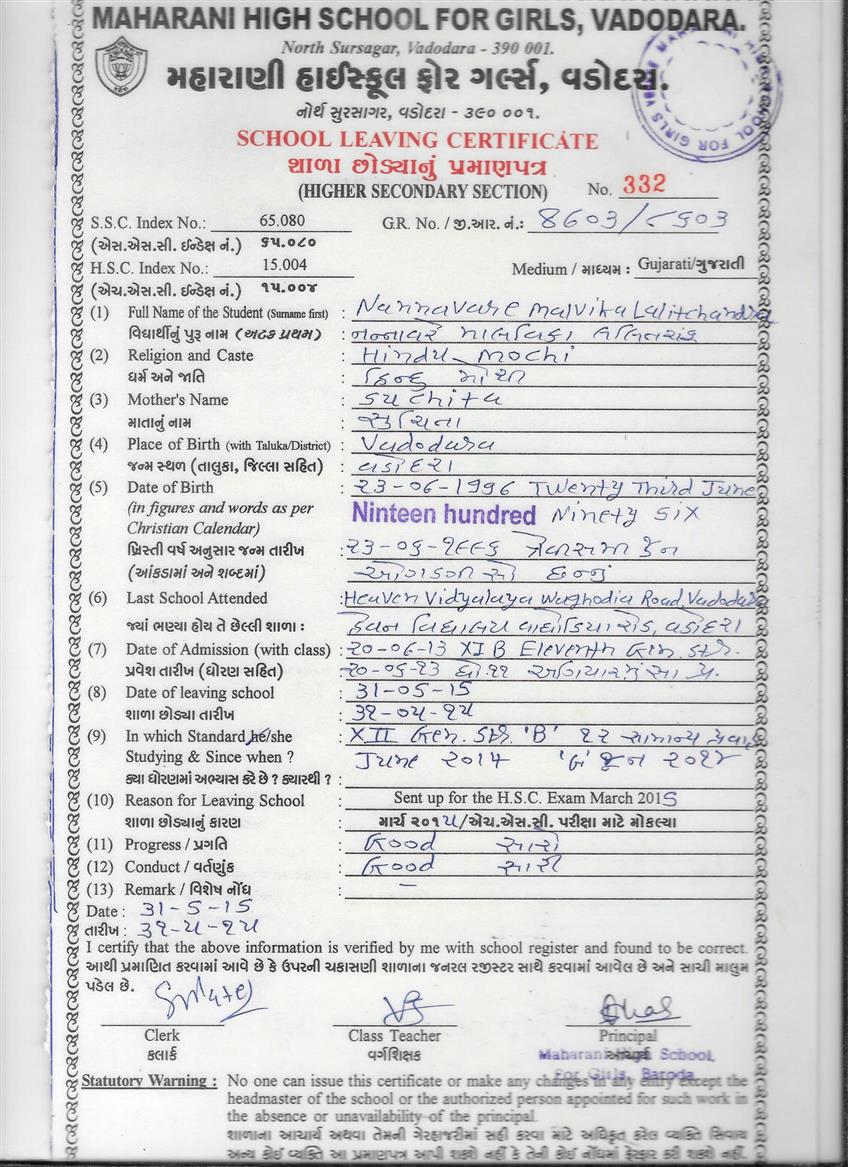 MAHARANI HIGH SCHOOL FOR GIRLS, VADODARA.
North Sursagar, Vadodara - 390 001.
મહારાણી હાઈસ્કૂલ ફોર ગર્લ્સ, વડોદરા.
નોર્થ સુરસાગર, વડોદરા - ૩૯૦ ૦૦૧.
SCHOOL LEAVING CERTIFICATE
શાળા છોડ્યાનું પ્રમાણપત્ર
(HIGHER SECONDARY SECTION) No. 332
S.S.C. Index No.: 65.080 G.R. No. / જી.આર. નં.: 8603/૮૬૦૩
(એસ.એસ.સી. ઈન્ડેક્ષ નં.) ૬૫.૦૮૦
H.S.C. Index No.: 15.004 Medium / માધ્યમ : Gujarati/ગુજરાતી
(એચ.એસ.સી. ઈન્ડેક્ષ નં.) ૧૫.૦૦૪
(1) Full Name of the Student (Surname first) : Nannavare Malvika Lalitchandra
વિદ્યાર્થીનું પુરૂ નામ (અટક પ્રથમ) : નન્નાવરે માલવિકા લલિતચંદ્ર
(2) Religion and Caste : Hindu Mochi
ધર્મ અને જાતિ : હિન્દુ મોચી
(3) Mother's Name : Suchita
માતાનું નામ : સુચિતા
(4) Place of Birth (with Taluka/District) : Vadodara
જન્મ સ્થળ (તાલુકા, જિલ્લા સહિત) : વડોદરા
(5) Date of Birth : 23-06-1996 Twenty Third June
(in figures and words as per Ninteen hundred Ninety Six
Christian Calendar)
ખ્રિસ્તી વર્ષ અનુસાર જન્મ તારીખ : ૨૩-૦૬-૧૯૯૬ ત્રેવીસમી જૂન
(આંકડામાં અને શબ્દમાં) ઓગણીસ સો છન્નું
(6) Last School Attended : Heaven Vidyalaya Waghodia Road, Vadodara
જ્યાં ભણ્યા હોય તે છેલ્લી શાળા : હેવન વિદ્યાલય વાઘોડિયા રોડ, વડોદરા
(7) Date of Admission (with class) : 20-06-13 XI B Eleventh Gen. Str.
પ્રવેશ તારીખ (ધોરણ સહિત) : ૨૦-૦૬-૧૩ ધો ૧૧ અગિયારમું સા પ્ર.
(8) Date of leaving school : 31-05-15
શાળા છોડ્યા તારીખ : ૩૧-૦૫-૧૫
(9) In which Standard he/she : XII Gen. Str. 'B' ૧૨ સામાન્ય પ્રવાહ
Studying & Since when ? June 2014 'બ' જૂન ૨૦૧૪
ક્યા ધોરણમાં અભ્યાસ કરે છે ? ક્યારથી ? :
(10) Reason for Leaving School : Sent up for the H.S.C. Exam March 2015
શાળા છોડ્યાનું કારણ : માર્ચ ૨૦૧૫/એચ.એસ.સી. પરીક્ષા માટે મોકલ્યા
(11) Progress / પ્રગતિ : Good સારી
(12) Conduct / વર્તણુંક : Good સારી
(13) Remark / વિશેષ નોંધ : -
Date : 31-5-15
તારીખ : ૩૧-૫-૧૫
I certify that the above information is verified by me with school register and found to be correct.
આથી પ્રમાણિત કરવામાં આવે છે કે ઉપરની ચકાસણી શાળાના જનરલ રજીસ્ટર સાથે કરવામાં આવેલ છે અને સાચી માલુમ
પડેલ છે.
Clerk Class Teacher Principal
કલાર્ક વર્ગશિક્ષક આચાર્ય
Maharani High School,
For Girls, Baroda
Statutory Warning : No one can issue this certificate or make any changes in any entry except the
headmaster of the school or the authorized person appointed for such work in
the absence or unavailability of the principal.
શાળાના આચાર્ય અથવા તેમની ગેરહાજરીમાં સહી કરવા માટે અધિકૃત કરેલ વ્યક્તિ સિવાય
અન્ય કોઈ વ્યક્તિ આ પ્રમાણપત્ર આપી શકશે નહીં કે તેની કોઈ નોંધમાં ફેરફાર કરી શકશે નહીં.